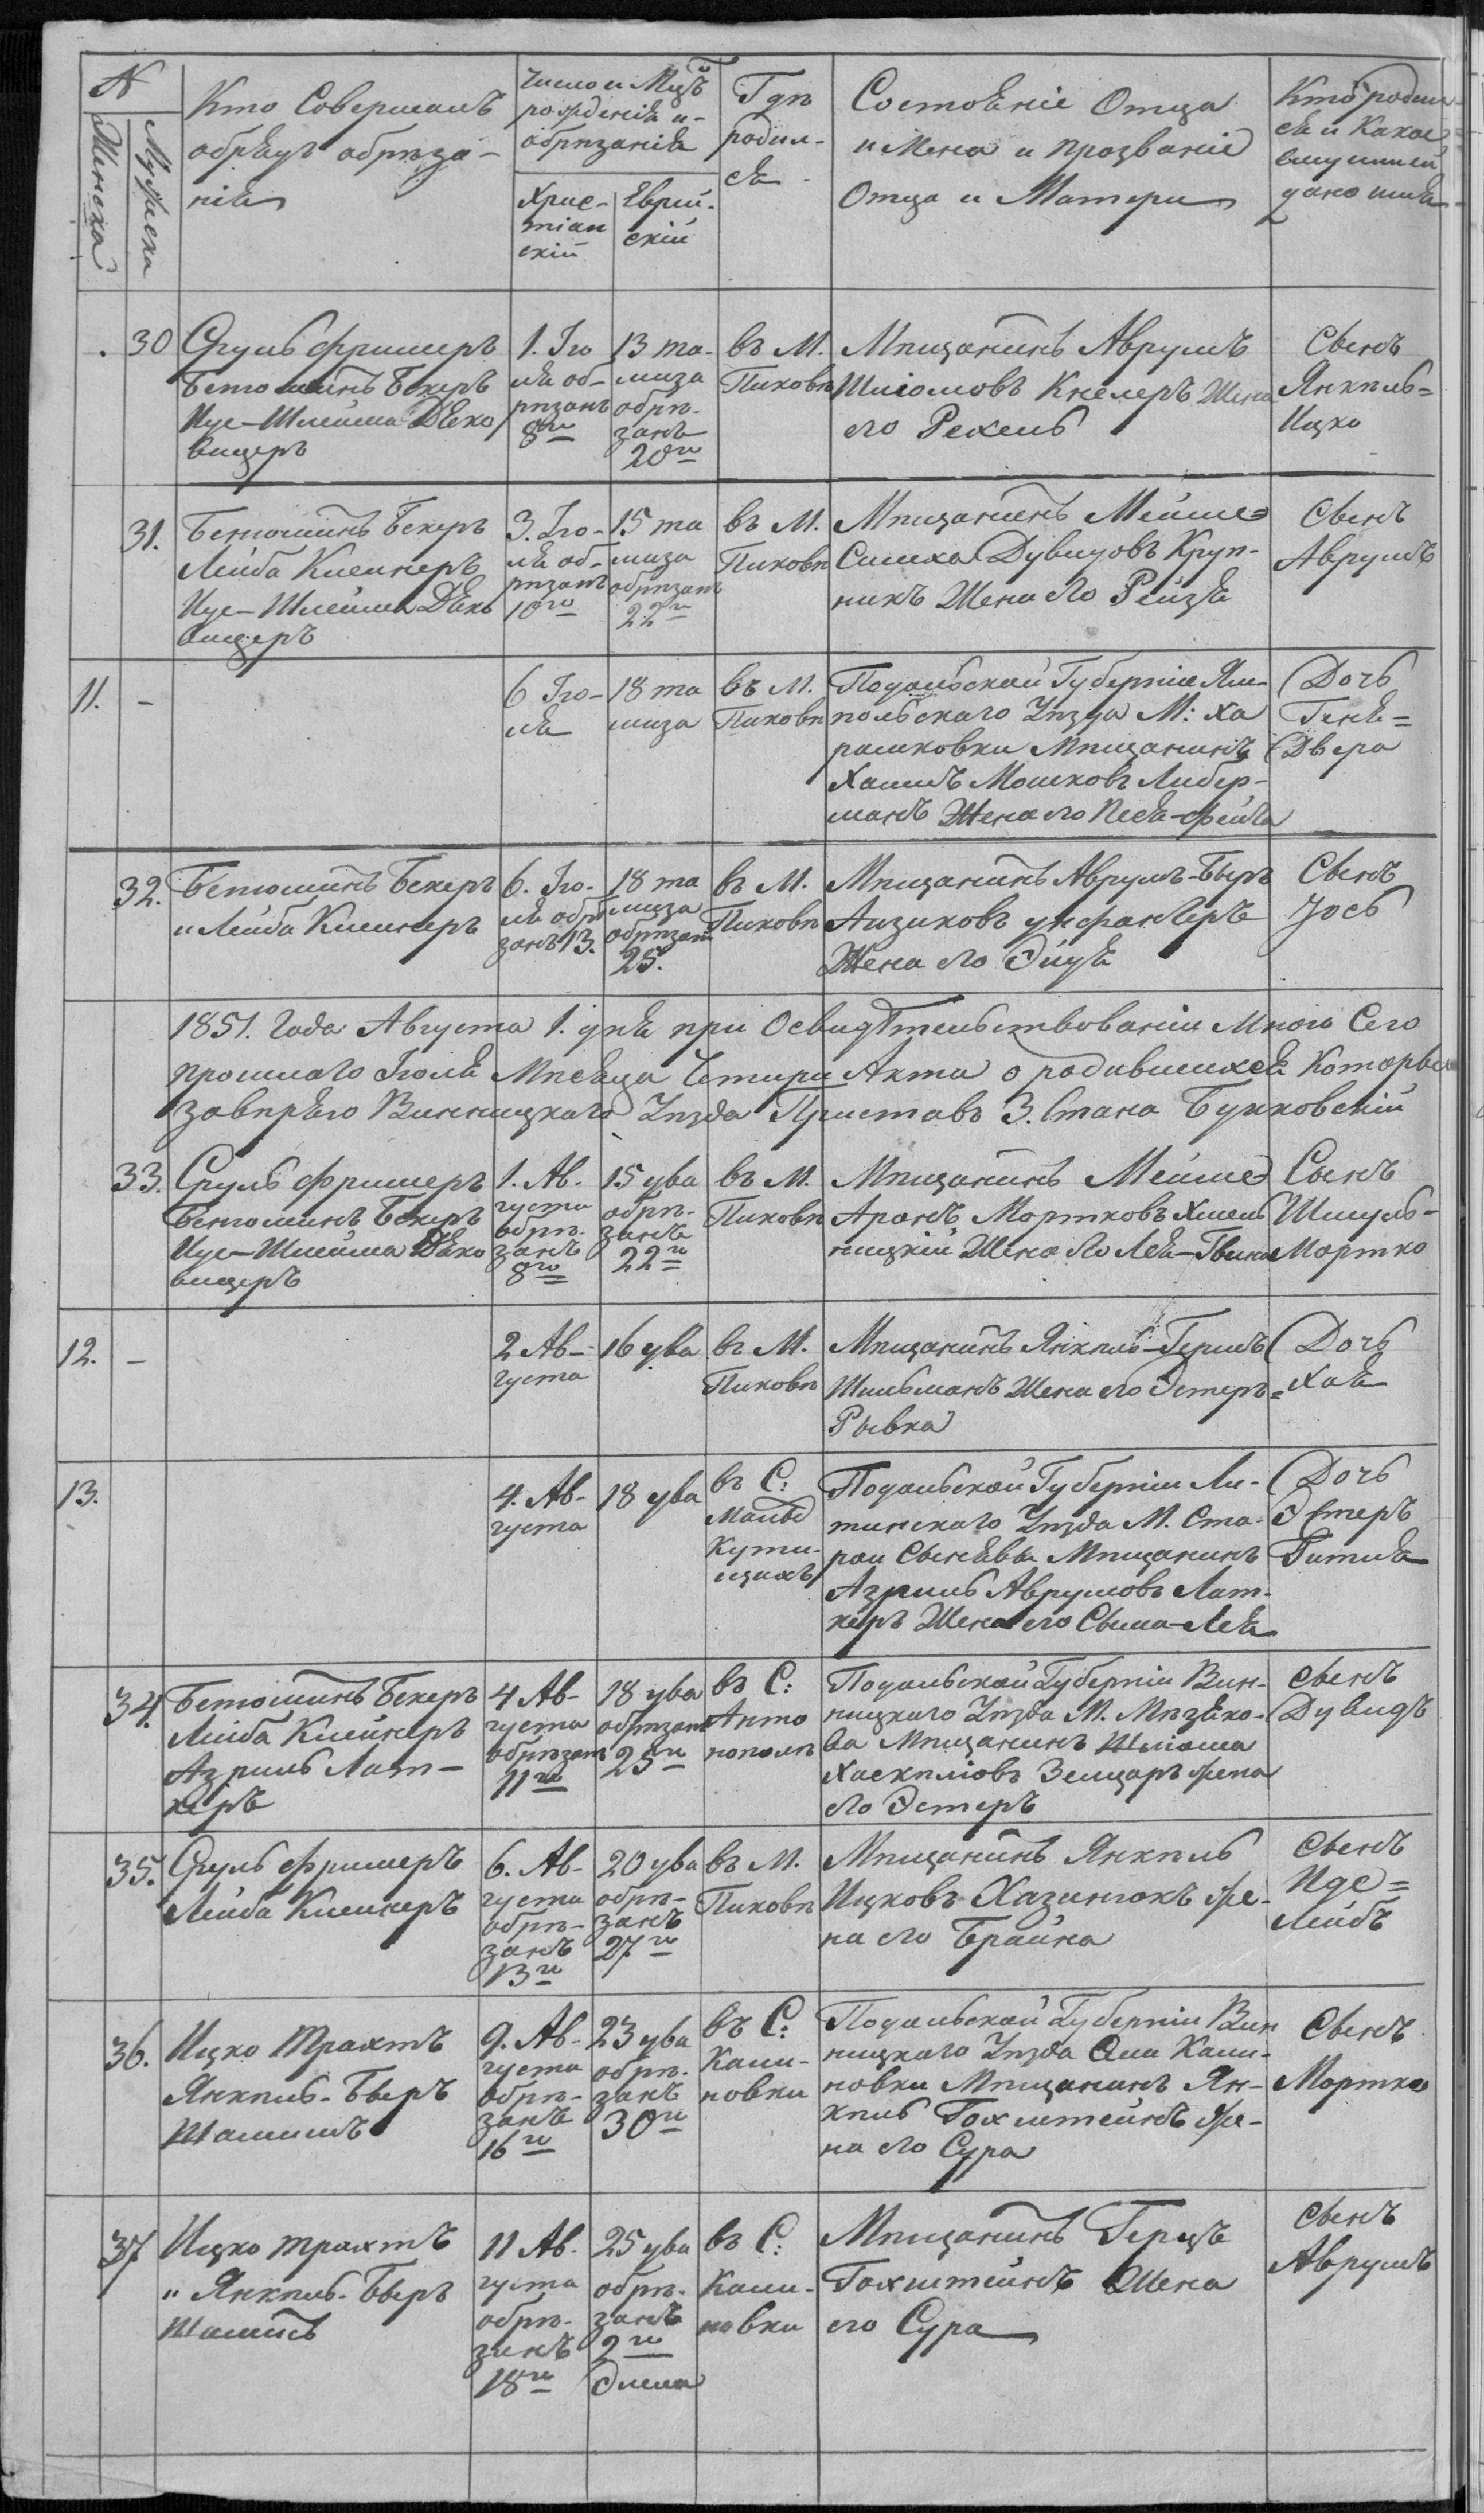 N
Женска
Мужеска
Кто Совершалъ
обрядъ обрѣза-
нія
Число и Мцъ
рожденія и
обрѣзанія
Хрис-
тіан
скій
Еврей-
скій
Гдѣ
родил-
ся
Состояніе Отца
и Мена и прозваніе
Отца и Матери
Кто родил
ся и Какое
ему или ей
дано имя
30
Сруль Фришеръ
Бенюминъ Бекеръ
Иус-Шлейма Дяко
вицеръ
1. Iю
ля об-
рѣзанъ
8го
13 та-
муза
обрѣ-
занъ
20го
въ М.
Пиковѣ
Мѣщанинъ Аврумъ
Шліомовъ Кнелеръ Жена
его Рехель
Сынъ
Янкель=
Ицко
31.
Бенюминъ Бекеръ
Лейба Клейнеръ
Иус-Шлейма Дяко
вицеръ
3. Iю-
ля об-
рѣзанъ
10го
15 та
муза
обрѣзанъ
22го
въ М.
Пиковѣ
Мѣщанинъ Мейше
Симха Дувидовъ Круп-
никъ Жена его Рейзя
Сынъ
Аврумъ
11. -
6 Iю-
ля
18 та
муза
въ М.
Пиковѣ
Подольской Губерніи Ям-
польскаго Уѣзда М: Ха
рашковки Мѣщанинъ
Хаимъ Мошковъ Либер-
манъ Жена его Песя-Фейга
Дочь
Геня=
Двера
32.
Бенюминъ Бекеръ
и Лейба Клейнеръ
6. Iю-
ля обрѣ
занъ 13.
18 та
муза
обрѣзанъ
25.
въ М.
Пиковѣ
Мѣщанинъ Аврумъ-Беръ
Айзиковъ Унфанберъ
Жена его Эйдя
Сынъ
Іось
1851. Года Августа 1. дня при Освидѣтельствованіи Мною Сего
прошлаго Іюля Мѣсяца Четыри Акта о родившихся Которые
завѣряю Винницкаго Уѣзда Приставъ 3. Стана Буяковскій
33.
Сруль Фришеръ
Бенюминъ Бекеръ
Иус-Шлейма Дяко
вицеръ
1. Ав-
густа
обрѣ-
занъ
8го
15 ува
обрѣ-
занъ
22го
въ М.
Пиковѣ
Мѣщанинъ Мейше
Аронъ Мортковъ Хмель
ницкій Жена его Лея-Гвина
Сынъ
Шмуль-
Мортко
12. -
2 Ав-
густа
16 ува
въ М.
Пиковѣ
Мѣщанинъ Янкель-Гершъ
Шильманъ Жена его Эстеръ=
Рывка
Дочь
Хая
13.
4. Ав-
густа
18 ува
въ С:
Малыс
Кути-
щахъ
Подольской Губерніи Ли-
тинскаго Уѣзда М. Ста-
рой Сынявы Мѣщанинъ
Азриль Аврумовъ Лат-
керъ Жена его Сыма-Лея
Дочь
Эстеръ
Гитля
34.
Бенюминъ Бекеръ
Лейба Клейнеръ
Азриль Лат-
керъ
4 Ав-
густа
обрѣзанъ
11го
18 ува
обрѣзанъ
25го
въ С:
Анто
нополѣ
Подольской Губерніи Вин-
ницкаго Уѣзда М. Мѣзяко-
ва Мѣщанинъ Шліома
Хаскеліовъ Земцаръ жена
его Эстеръ
Сынъ
Дувидъ
35.
Сруль Фришеръ
Лейба Клейнеръ
6. Ав-
густа
обрѣ-
занъ
13го
20 ува
обрѣ-
занъ
27го
въ М.
Пиковѣ
Мѣщанинъ Янкель
Ицковъ Хазинюкъ же-
на его Брайна
Сынъ
Иде=
Лейбъ
36.
Ицко Трахтъ
Янкель-Беръ
Шамишъ
9. Ав-
густа
обрѣ-
занъ
16го
23 ува
обрѣ-
занъ
30го
въ С:
Кали-
новки
Подольской Губерніи Вин
ницкаго Уѣзда Сла Кали-
новки Мѣщанинъ Ян-
кель Гохштейнъ же-
на его Сура
Сынъ
Мортко
37
Ицко Трахтъ
и Янкель-Беръ
Шамисъ
11 Ав-
густа
обрѣ-
занъ
18го
25 ува
обрѣ-
занъ
2го
Элела
въ С:
Кали-
новки
Мѣщанинъ Герцъ
Гохштейнъ Жена
его Сура
Сынъ
Аврумъ